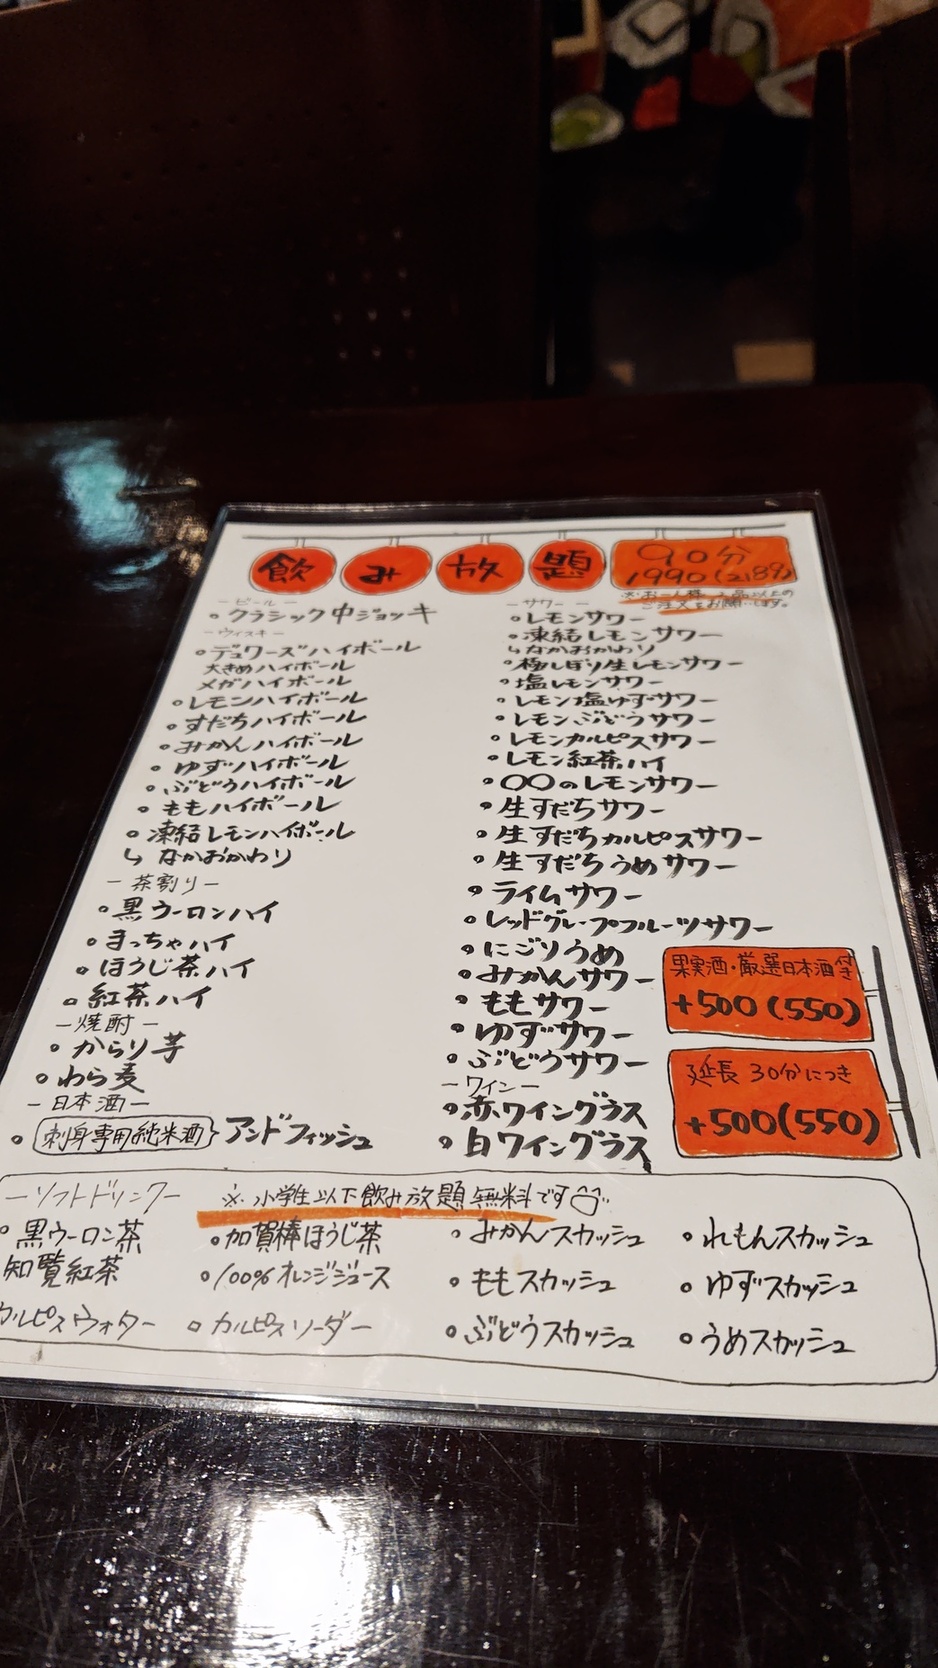 飲み放題
90分
1990(2189)
※お一人様2品以上の
ご注文をお願いします。
ービールー
・クラシック中ジョッキ
ーウィスキー
・デュワーズハイボール
大きめハイボール
メガハイボール
・レモンハイボール
・すだちハイボール
・みかんハイボール
・ゆずハイボール
・ぶどうハイボール
・ももハイボール
・凍結レモンハイボール
↳なかおかわり
ー茶割りー
・黒ウーロンハイ
・まっちゃハイ
・ほうじ茶ハイ
・紅茶ハイ
ー焼酎ー
・からり芋
・わら麦
ー日本酒ー
・刺身専用純米酒 アンドフィッシュ
ーサワーー
・レモンサワー
・凍結レモンサワー
↳なかおかわり
・極しぼり生レモンサワー
・塩レモンサワー
・レモン塩ゆずサワー
・レモンぶどうサワー
・レモンカルピスサワー
・レモン紅茶ハイ
・〇〇のレモンサワー
・生すだちサワー
・生すだちカルピスサワー
・生すだちうめサワー
・ライムサワー
・レッドグループフルーツサワー
・にごりうめ
・みかんサワー
・ももサワー
・ゆずサワー
・ぶどうサワー
ーワインー
・赤ワイングラス
・白ワイングラス
果実酒・厳選日本酒付き
+500(550)
延長 30分につき
+500(550)
ーソフトドリンクー ※小学生以下飲み放題無料です
・黒ウーロン茶 ・加賀棒ほうじ茶 ・みかんスカッシュ ・れもんスカッシュ
知覧紅茶 ・100%オレンジジュース ・ももスカッシュ ・ゆずスカッシュ
カルピスウォター ・カルピスソーダー ・ぶどうスカッシュ ・うめスカッシュ